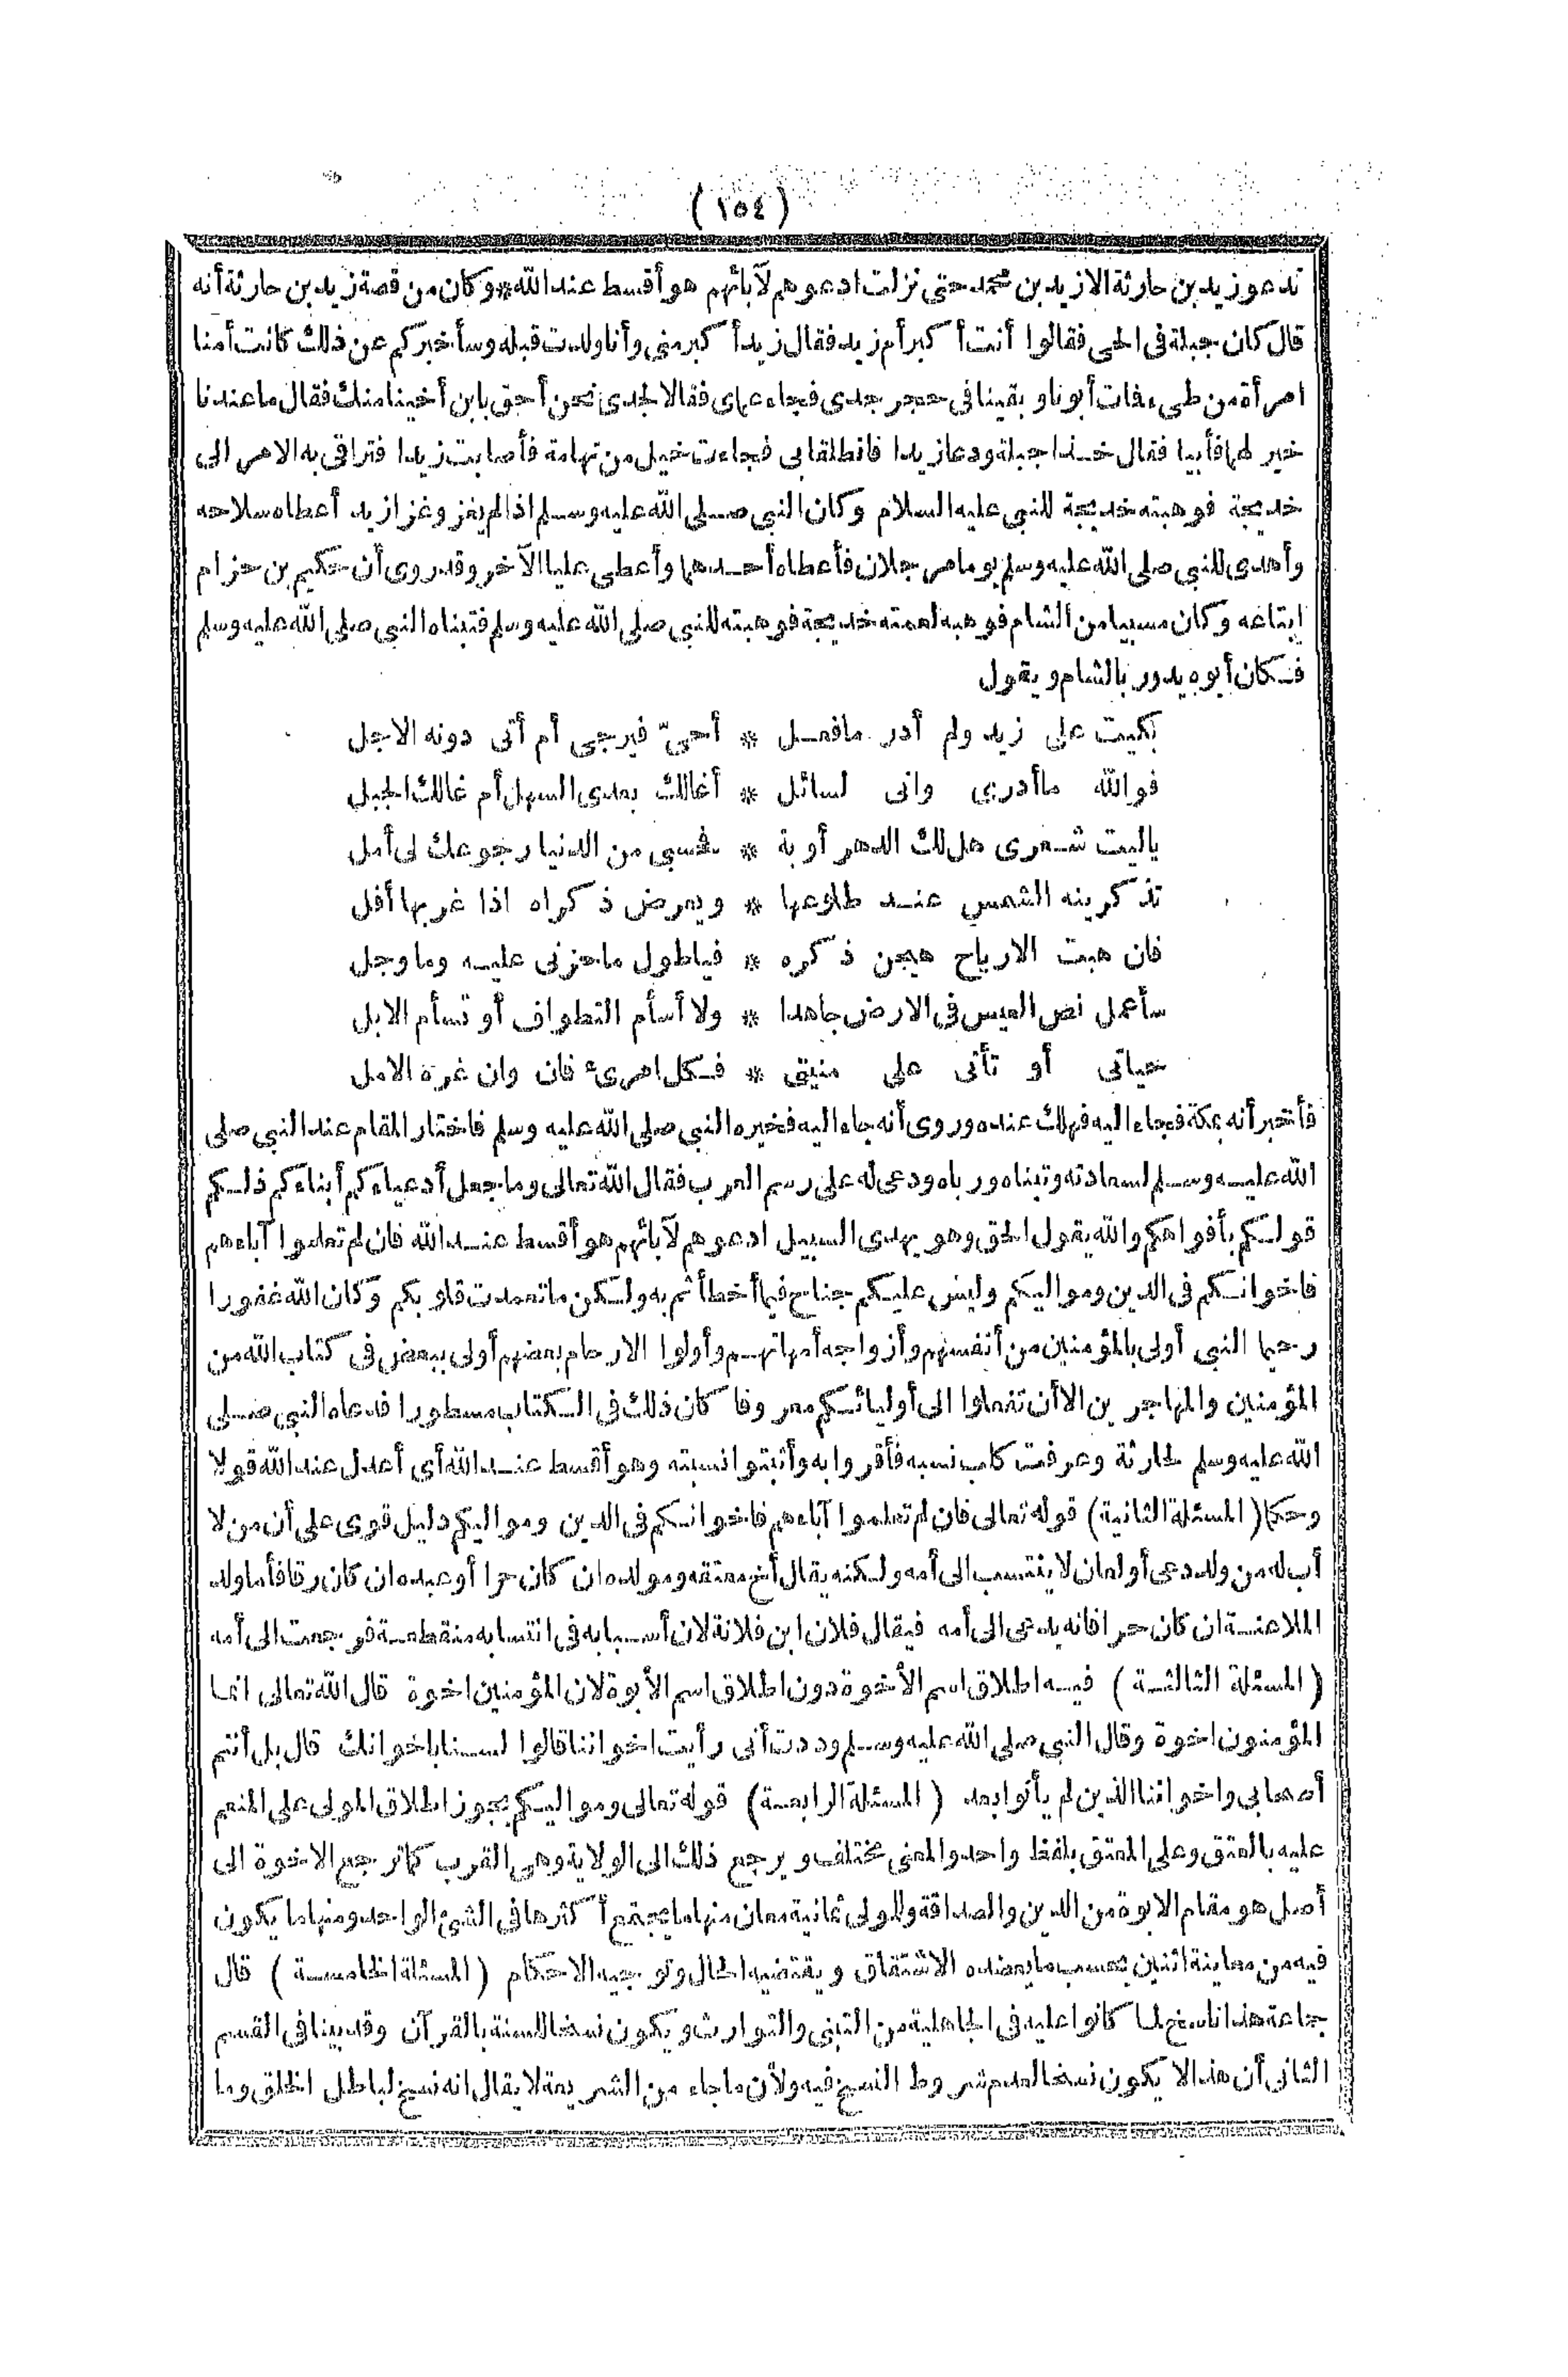 (١٥٤)
ندعو زيد بن حارثة الا زيد بن محمد حتى نزلت ادعوهم لآبائهم هو أقسط عند الله * وكان من قصة زيد بن حارثة أنه
قال كان جبلة فى الحى فقالوا أنت أكبر أم زيد فقال زيد أكبر منى وأنا ولدت قبله وسأخبركم عن ذلك كانت أمنا
امرأة من طىء فمات أبونا وبقينا فى حجر جدى فجاء عماى فقالا لجدى نحن أحق بابن أخينا منك فقال ما عندنا
خير لهما فأبيا فقال خذا جبلة ودعا زيدا فانطلقا بى فجاءت خيل من تهامة فأصابت زيدا فتراقى به الامر الى
خديجة فوهبته خديجة للنبى عليه السلام وكان النبى صلى الله عليه وسلم اذا لم يغز وغزا زيد أعطاه سلاحه
وأهدى للنبى صلى الله عليه وسلم يوما مرجلان فأعطاه أحدهما وأعطى عليا الآخر وقد روى أن حكيم بن حزام
ابتاعه وكان مسبيا من الشام فوهبه لعمته خديجة فوهبته للنبى صلى الله عليه وسلم فتبناه النبى صلى الله عليه وسلم
فكان أبوه يدور بالشام ويقول
بكيت على زيد ولم أدر مافعل * أحىّ فيرجى أم أتى دونه الاجل
فوالله ماأدرى وانى لسائل * أغالك بعدى السهل أم غالك الجبل
ياليت شعرى هل لك الدهر أوبة * فحسبى من الدنيا رجوعك لى أمل
تذكرينه الشمس عند طلاعها * ويعرض ذكراه اذا غربها أفل
فان هبت الارياح هيجن ذكره * فياطول ماحزنى عليه وماوجل
سأعمل نص العيس فى الارض جاهدا * ولا أسأم التطواف أو تسأم الابل
حياتى أو تأتى على منيتى * فكل امرىء فان وان غره الامل
فأخبر أنه بمكة فجاء اليه فهلك عنده وروى أنه جاء اليه فخيره النبى صلى الله عليه وسلم فاختار المقام عند النبى صلى
الله عليه وسلم لسعادته وتبناه ورباه ودعى له على رسم العرب فقال الله تعالى وماجعل أدعياءكم أبناءكم ذلكم
قولكم بأفواهكم والله يقول الحق وهو يهدى السبيل ادعوهم لآبائهم هو أقسط عند الله فان لم تعلموا آباءهم
فاخوانكم فى الدين ومواليكم وليس عليكم جناح فيما أخطأتم به ولكن ماتعمدت قلوبكم وكان الله غفورا
رحيما النبى أولى بالمؤمنين من أنفسهم وأزواجه أمهاتهم وأولوا الارحام بعضهم أولى ببعض فى كتاب الله من
المؤمنين والمهاجرين الا أن تفعلوا الى أوليائكم معروفا كان ذلك فى الكتاب مسطورا فدعاه النبى صلى
الله عليه وسلم لحارثة وعرفت كلب نسبه فأقروا به وأثبتوا نسبته وهو أقسط عند الله أى أعدل عند الله قولا
وحكما (المسئلة الثانية) قوله تعالى فان لم تعلموا آباءهم فاخوانكم فى الدين ومواليكم دليل قوى على أن من لا
أب له من ولد دعى أولعان لا ينتسب الى أمه ولكنه يقال أخ معتقه ومولده ان كان حرا أو عبده ان كان رقا فأما ولد
الملاعنة ان كان حرا فانه يدعى الى أمه فيقال فلان ابن فلانة لان أسبابه فى انتسابه منقطعة فرجعت الى أمه
(المسئلة الثالثة) فيه اطلاق اسم الأخوة دون اطلاق اسم الأبوة لان المؤمنين اخوة قال الله تعالى انما
المؤمنون اخوة وقال النبى صلى الله عليه وسلم وددت أنى رأيت اخواننا قالوا لسنا باخوانك قال بل أنتم
أصحابى واخواننا الذين لم يأتوا بعد (المسئلة الرابعة) قوله تعالى ومواليكم يجوز اطلاق المولى على المنعم
عليه بالعتق وعلى المعتق بلفظ واحد والمعنى مختلف ويرجع ذلك الى الولاية وهى القرب كما ترجع الاخوة الى
أصل هو مقام الابوة من الدين والصداقة وللمولى ثمانية معان منها ما يجتمع أكثرها فى الشىء الواحد ومنها ما يكون
فيه من معاينة اثنين بحسب ما يعضده الاشتقاق ويقتضيه الحال وتوجبه الاحكام (المسئلة الخامسة) قال
جماعة هذا ناسخ لما كانوا عليه فى الجاهلية من التبنى والتوارث ويكون نسخا للسنة بالقرآن وقد بينا فى القسم
الثانى أن هذا لا يكون نسخا لعدم شروط النسخ فيه ولأن ماجاء من الشريعة لا يقال انه نسخ لباطل الخلق وما